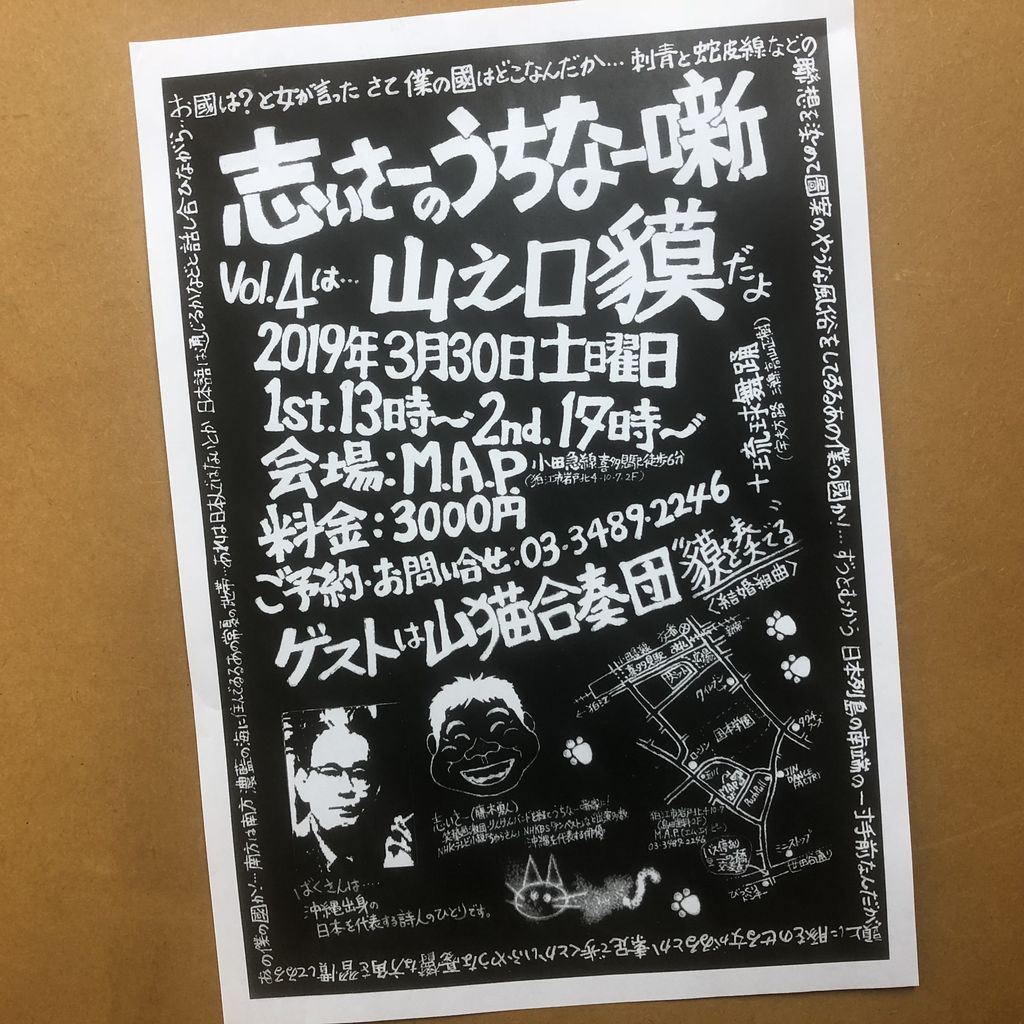 お國は?と女が言った さて僕の國はどこなんだか… 刺青と蛇皮線などの
聯想を染めて圖案のやうな風俗をしてゐるあの僕の國か!… ずっとむかう 日本列島の南端の一寸手前なんだが
頭上に豚をのせる女がゐるとか 素足で歩くとかいふやうな 憂鬱な方角を習慣してゐる
あの僕の國か!… 南方は南方 濃藍の海に住んでゐるあの常夏の地帯… あれは日本人ではないとか 日本語は通じるかなどと話し合ひながら…
志ぃさーのうちなー噺
Vol.4は… 山之口貘だよ
2019年3月30日土曜日
1st.13時〜2nd.17時〜
会場:M.A.P. 小田急線喜多見駅徒歩6分
(狛江市岩戸北4-10-7.2F)
料金:3000円
ご予約・お問い合せ:03-3489-2246
+琉球舞踊
ゲストは山猫合奏団"貘を奏でる"
<結婚組曲>
ばくさんは…
沖縄出身の
日本を代表する詩人のひとりです。
志ぃさー(藤木勇人)
沖縄を代表する俳優
狛江市岩戸北4-10-7
M.A.P.
03-3489-2246
喜多見駅
広場
ローソン
MAP
JIN DANCE FACTRY
ミニストップ
世田谷通り